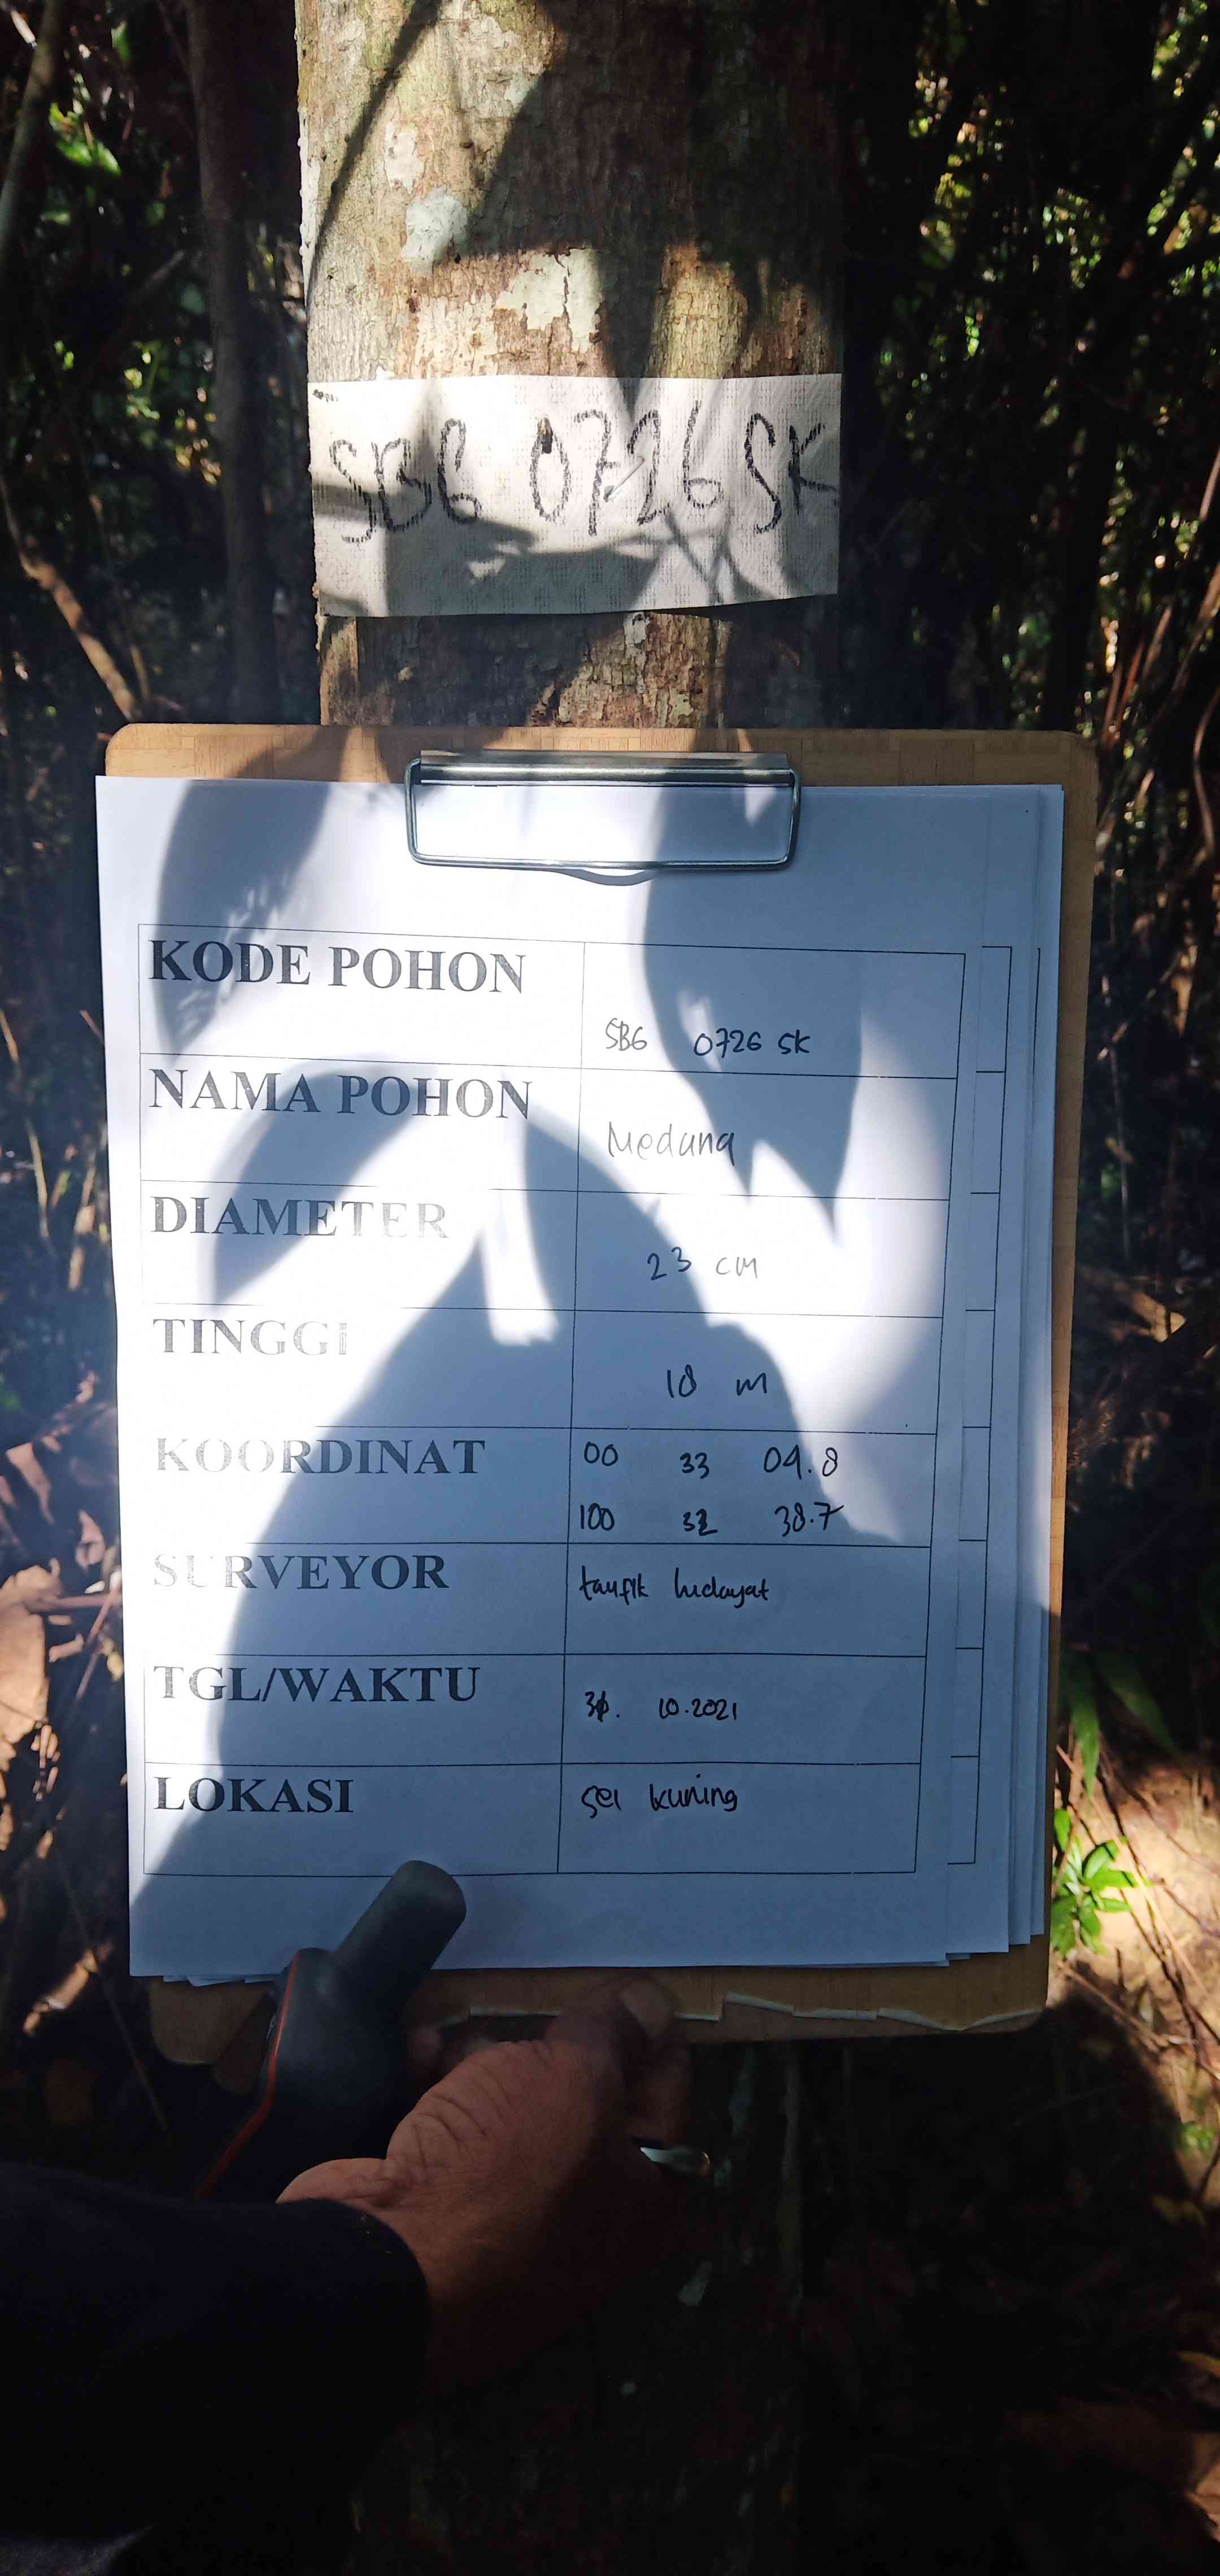 SBG 0726 SK
KODE POHON
SBG 0726 SK
NAMA POHON
Medang
DIAMETER
23 cm
TINGGI
18 m
KOORDINAT
00 33 04.8
100 32 38.7
SURVEYOR
taufik hidayat
TGL/WAKTU
10.2021
LOKASI
Sei kuning